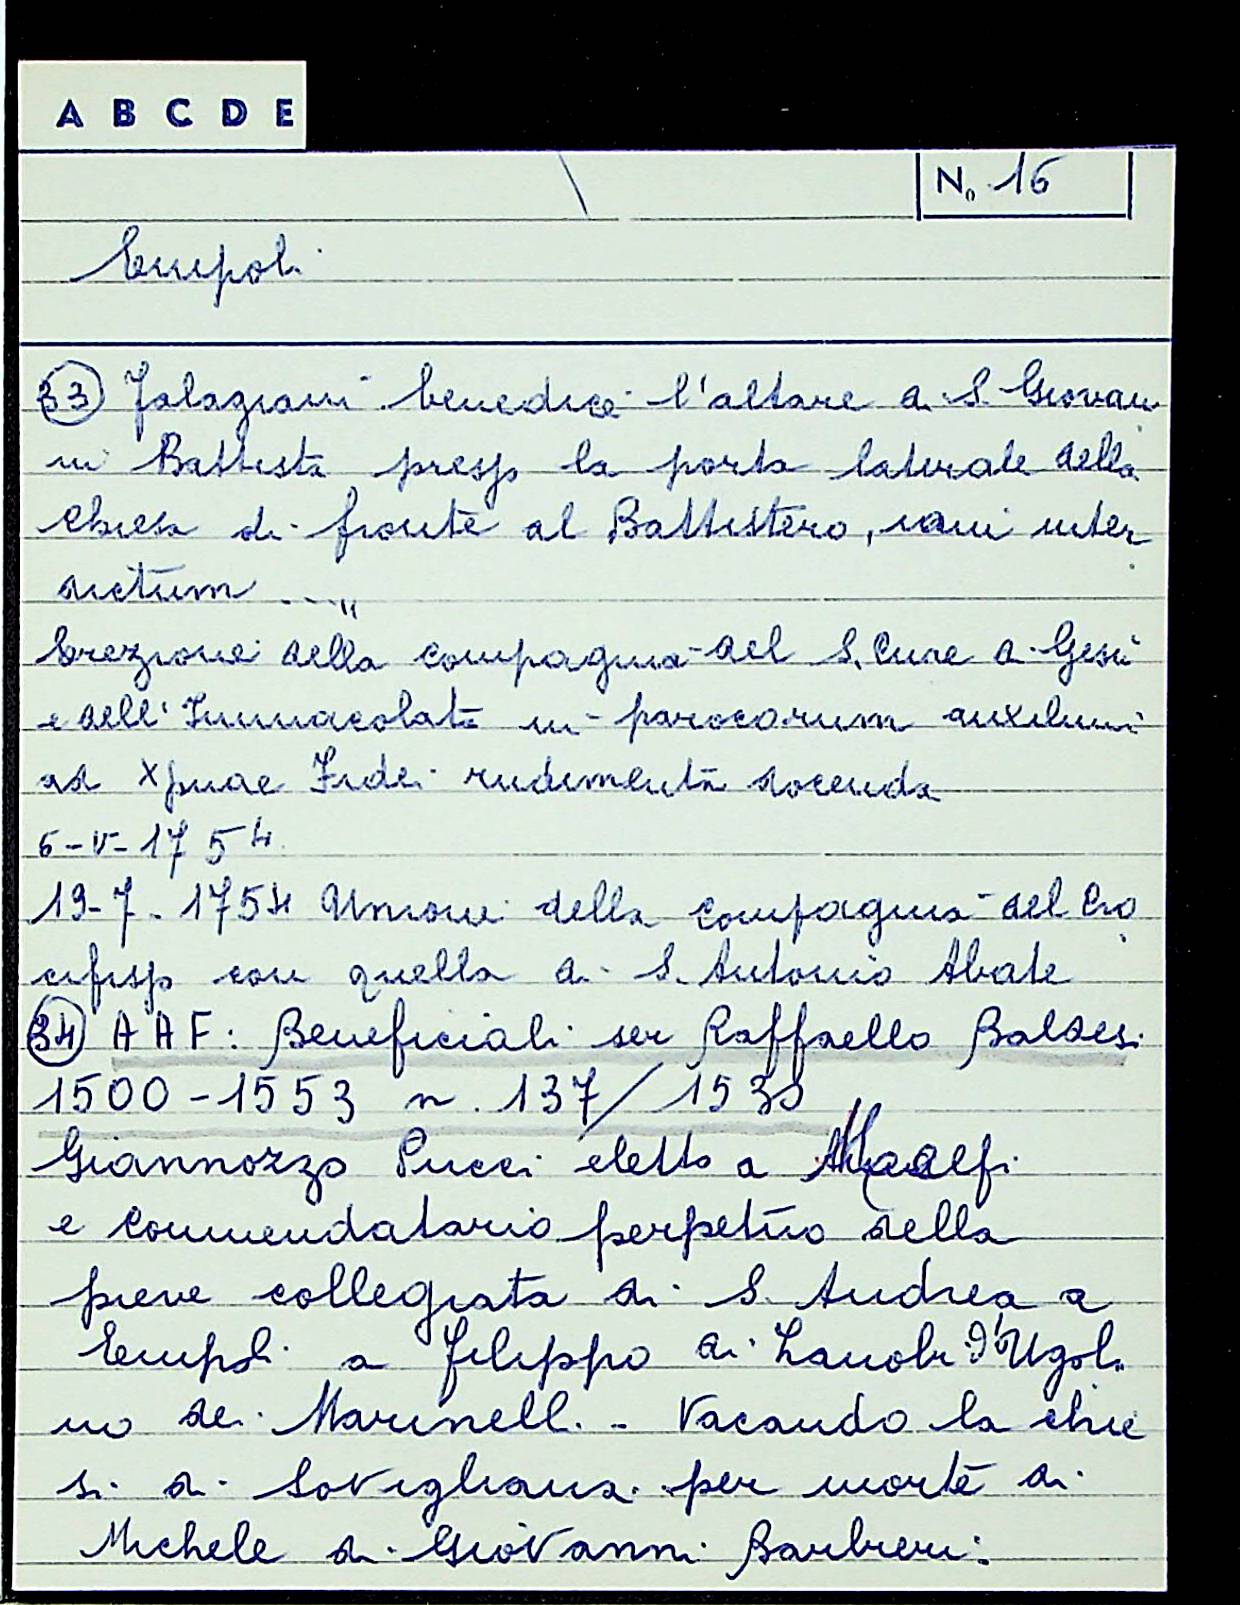 A B C D E
No 16
Empoli
33 Falagiani benedice l'altare di S. Giovan
ni Battista presso la porta laterale della
Chiesa di fronte al Battistero, iam inter
dictum ...."
Erezione della compagnia del S. Cuore di Gesù
e dell'Immacolata in parocorum auxilium
ad Xpnae Fidei rudimenta docenda
6-V-1754.
19-7-1754 Unione della compagnia del Cro
cifisso con quella di S. Antonio Abate
34 A A F: Beneficiali ser Raffaello Baldesi
1500-1553 n. 137/
Giannozzo Pucci eletto a
e commendatario perpetuo della
pieve collegiata di S. Andrea a
Empoli a Filippo di Zanobi d'Ugoli
no de' Marinelli. - Vacando la chie
si di Sovigliana per morte di
Michele di Giovanni Barbieri: